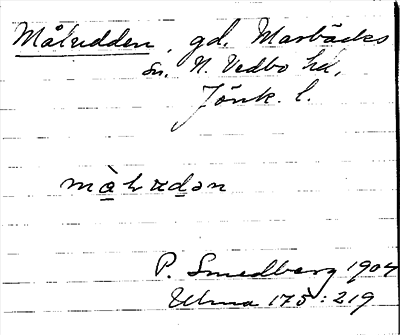 Måludden, gd, Marbäcks
sn. N. Vedbo hd,
Jönk. l.
P. Smedberg 1904
Ulma 175:219